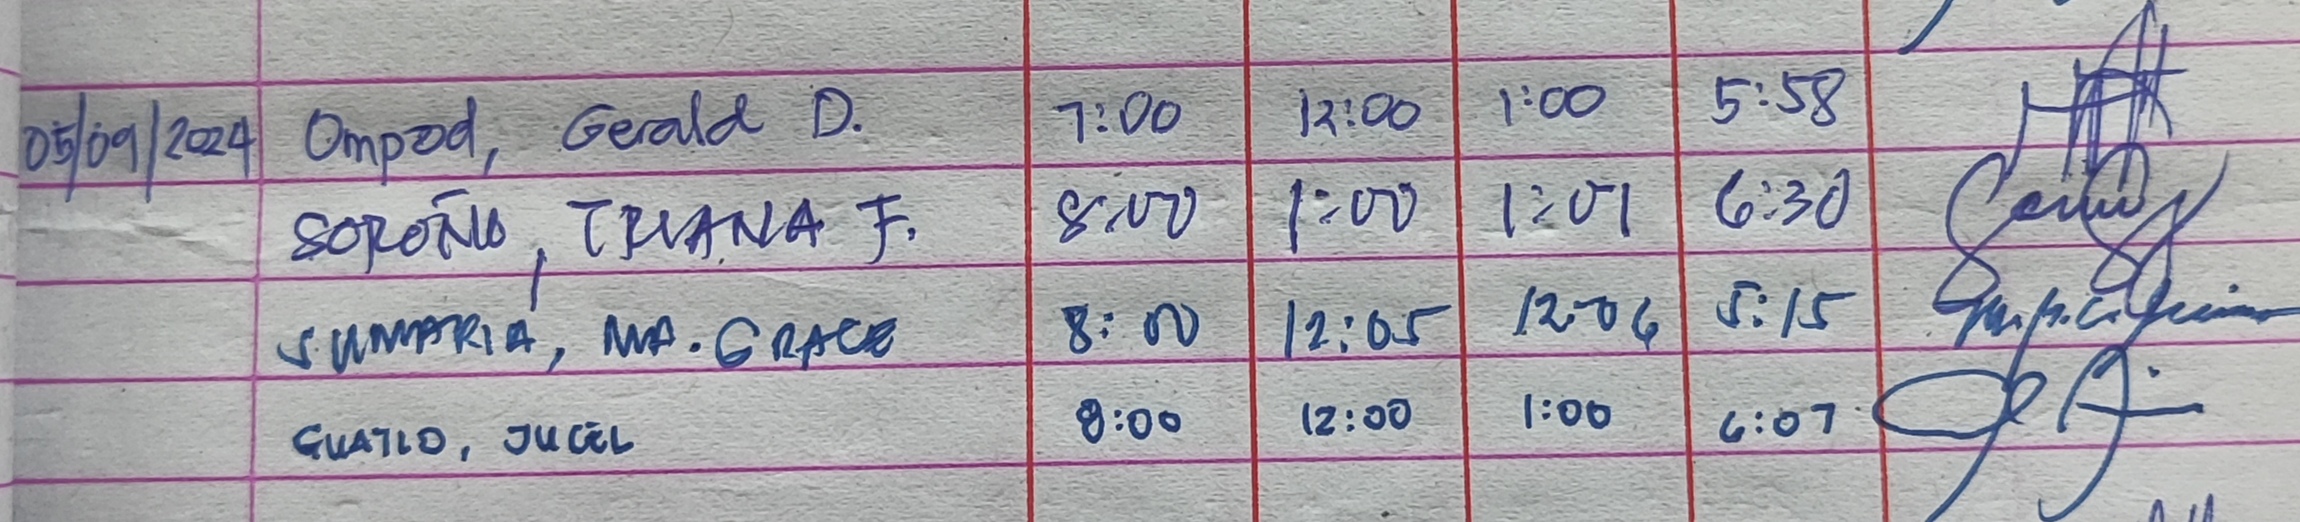 05/09/2024 Ompod, Gerald D. 7:00 12:00 1:00 5:58
SOROÑO, TRIANA F. 8:00 1:00 1:01 6:30
SUMARIA, MA. GRACE 8:00 12:05 12:06 5:15
GUATLO, JUCEL 8:00 12:00 1:00 6:07